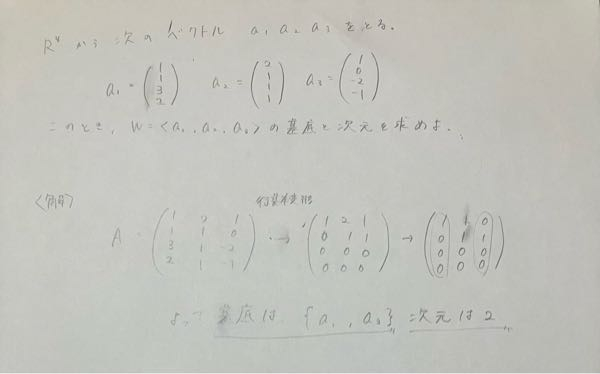 R⁴ から 次の ベクトル a₁ a₂ a₃ をとる.
a₁ = (1 1 3 2) a₂ = (2 1 1 1) a₃ = (1 0 -2 -1)
このとき, W = <a₁, a₂, a₃> の基底と次元を求めよ.
<解>
A = (1 2 1 / 1 1 0 / 3 1 -2 / 2 1 -1) → (1 2 1 / 0 1 1 / 0 0 0 / 0 0 0) → (1 1 0 / 0 1 1 / 0 0 0 / 0 0 0)
よって 基底は {a₁, a₃} 次元は 2